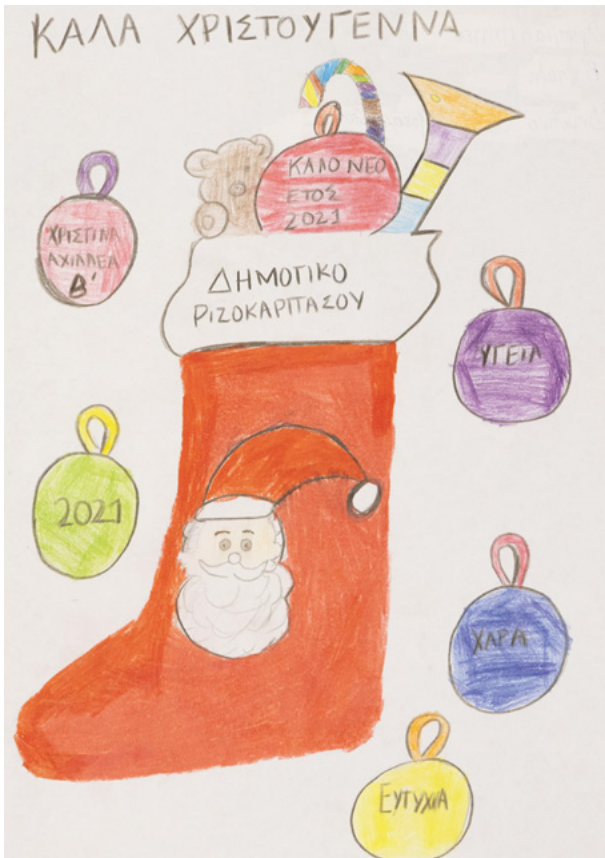 ΚΑΛΑ ΧΡΙΣΤΟΥΓΕΝΝΑ
ΚΑΛΟ ΝΕΟ
ΕΤΟΣ
2021
ΧΡΙΣΤΙΝΑ
ΑΧΙΛΛΕΑ
Β'
ΔΗΜΟΤΙΚΟ
ΡΙΖΟΚΑΡΠΑΣΟΥ
ΥΓΕΙΑ
2021
ΧΑΡΑ
ΕΥΤΥΧΙΑ